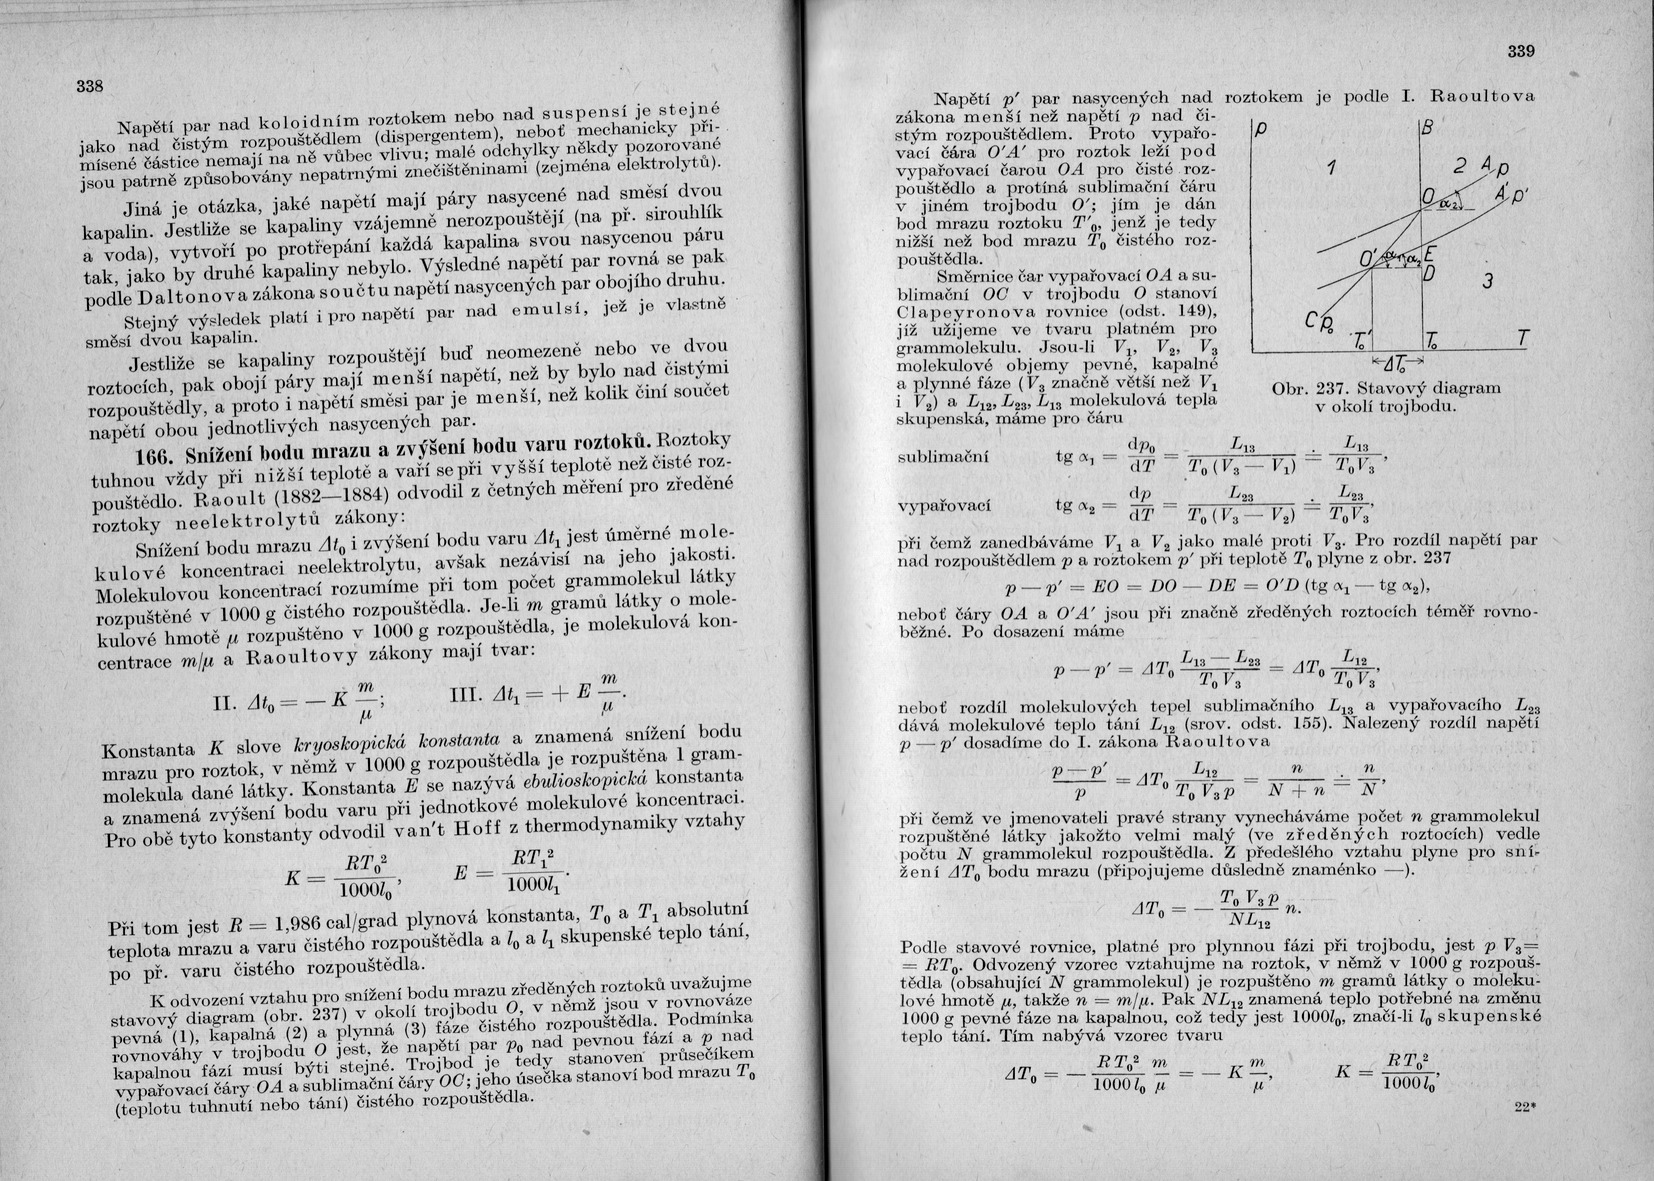 338
Napětí par nad koloidním roztokem nebo nad suspensí je stejné
jako nad čistým rozpouštědlem (dispergentem), neboť mechanicky při-
mísené částice nemají na ně vůbec vlivu; malé odchylky někdy pozorované
jsou patrně způsobovány nepatrnými znečištěninami (zejména elektrolytů).
Jiná je otázka, jaké napětí mají páry nasycené nad směsí dvou
kapalin. Jestliže se kapaliny vzájemně nerozpouštějí (na př. sirouhlík
a voda), vytvoří po protřepání každá kapalina svou nasycenou páru
tak, jako by druhé kapaliny nebylo. Výsledné napětí par rovná se pak
podle Daltonova zákona součtu napětí nasycených par obojího druhu.
Stejný výsledek platí i pro napětí par nad emulsí, jež je vlastně
směsí dvou kapalin.
Jestliže se kapaliny rozpouštějí buď neomezeně nebo ve dvou
roztocích, pak obojí páry mají menší napětí, než by bylo nad čistými
rozpouštědly, a proto i napětí směsi par je menší, než kolik činí součet
napětí obou jednotlivých nasycených par.
166. Snížení bodu mrazu a zvýšení bodu varu roztoků. Roztoky
tuhnou vždy při nižší teplotě a vaří se při vyšší teplotě než čisté roz-
pouštědlo. Raoult (1882—1884) odvodil z četných měření pro zředěné
roztoky neelektrolytů zákony:
Snížení bodu mrazu Δt₀ i zvýšení bodu varu Δt₁ jest úměrné mole-
kulové koncentraci neelektrolytu, avšak nezávisí na jeho jakosti.
Molekulovou koncentrací rozumíme při tom počet grammolekul látky
rozpuštěné v 1000 g čistého rozpouštědla. Je-li m gramů látky o mole-
kulové hmotě μ rozpuštěno v 1000 g rozpouštědla, je molekulová kon-
centrace m/μ a Raoultovy zákony mají tvar:
II. Δt₀ = — K m/μ; III. Δt₁ = + E m/μ.
Konstanta K slove kryoskopická konstanta a znamená snížení bodu
mrazu pro roztok, v němž v 1000 g rozpouštědla je rozpuštěna 1 gram-
molekula dané látky. Konstanta E se nazývá ebulioskopická konstanta
a znamená zvýšení bodu varu při jednotkové molekulové koncentraci.
Pro obě tyto konstanty odvodil van't Hoff z thermodynamiky vztahy
K = RT₀²/1000l₀, E = RT₁²/1000l₁.
Při tom jest R = 1,986 cal/grad plynová konstanta, T₀ a T₁ absolutní
teplota mrazu a varu čistého rozpouštědla a l₀ a l₁ skupenské teplo tání,
po př. varu čistého rozpouštědla.
K odvození vztahu pro snížení bodu mrazu zředěných roztoků uvažujme
stavový diagram (obr. 237) v okolí trojbodu O, v němž jsou v rovnováze
pevná (1), kapalná (2) a plynná (3) fáze čistého rozpouštědla. Podmínka
rovnováhy v trojbodu O jest, že napětí par p₀ nad pevnou fází a p nad
kapalnou fází musí býti stejné. Trojbod je tedy stanoven průsečíkem
vypařovací čáry OA a sublimační čáry OC; jeho úsečka stanoví bod mrazu T₀
(teplotu tuhnutí nebo tání) čistého rozpouštědla.
339
Napětí p′ par nasycených nad roztokem je podle I. Raoultova
zákona menší než napětí p nad či-
stým rozpouštědlem. Proto vypařo-
vací čára O′A′ pro roztok leží pod
vypařovací čarou OA pro čisté roz-
pouštědlo a protíná sublimační čáru
v jiném trojbodu O′; jím je dán
bod mrazu roztoku T′₀, jenž je tedy
nižší než bod mrazu T₀ čistého roz-
pouštědla.
Směrnice čar vypařovací OA a su-
blimační OC v trojbodu O stanoví
Clapeyronova rovnice (odst. 149),
jíž užijeme ve tvaru platném pro
grammolekulu. Jsou-li V₁, V₂, V₃
molekulové objemy pevné, kapalné
a plynné fáze (V₃ značně větší než V₁
i V₂) a L₁₂, L₂₃, L₁₃ molekulová tepla
skupenská, máme pro čáru
p B
1 2 A p
O α₂ A′ p′
O′ α₁ α₂ E
D 3
C p₀
T₀′ T₀ T
ΔT₀
Obr. 237. Stavový diagram
v okolí trojbodu.
sublimační tg α₁ = dp₀/dT = L₁₃/T₀ (V₃ — V₁) ≐ L₁₃/T₀V₃,
vypařovací tg α₂ = dp/dT = L₂₃/T₀ (V₃ — V₂) ≐ L₂₃/T₀V₃,
při čemž zanedbáváme V₁ a V₂ jako malé proti V₃. Pro rozdíl napětí par
nad rozpouštědlem p a roztokem p′ při teplotě T₀ plyne z obr. 237
p — p′ = EO = DO — DE = O′D (tg α₁ — tg α₂),
neboť čáry OA a O′A′ jsou při značně zředěných roztocích téměř rovno-
běžné. Po dosazení máme
p — p′ = ΔT₀ L₁₃ — L₂₃/T₀ V₃ = ΔT₀ L₁₂/T₀ V₃,
neboť rozdíl molekulových tepel sublimačního L₁₃ a vypařovacího L₂₃
dává molekulové teplo tání L₁₂ (srov. odst. 155). Nalezený rozdíl napětí
p — p′ dosadíme do I. zákona Raoultova
p — p′/p = ΔT₀ L₁₂/T₀ V₃ p = n/N + n ≐ n/N,
při čemž ve jmenovateli pravé strany vynecháváme počet n grammolekul
rozpuštěné látky jakožto velmi malý (ve zředěných roztocích) vedle
počtu N grammolekul rozpouštědla. Z předešlého vztahu plyne pro sní-
žení ΔT₀ bodu mrazu (připojujeme důsledně znaménko —).
ΔT₀ = — T₀ V₃ p/NL₁₂ n.
Podle stavové rovnice, platné pro plynnou fázi při trojbodu, jest p V₃=
= RT₀. Odvozený vzorec vztahujme na roztok, v němž v 1000 g rozpouš-
tědla (obsahující N grammolekul) je rozpuštěno m gramů látky o moleku-
lové hmotě μ, takže n = m/μ. Pak NL₁₂ znamená teplo potřebné na změnu
1000 g pevné fáze na kapalnou, což tedy jest 1000l₀, značí-li l₀ skupenské
teplo tání. Tím nabývá vzorec tvaru
ΔT₀ = — RT₀²/1000 l₀ m/μ = — K m/μ, K = RT₀²/1000 l₀,
22*